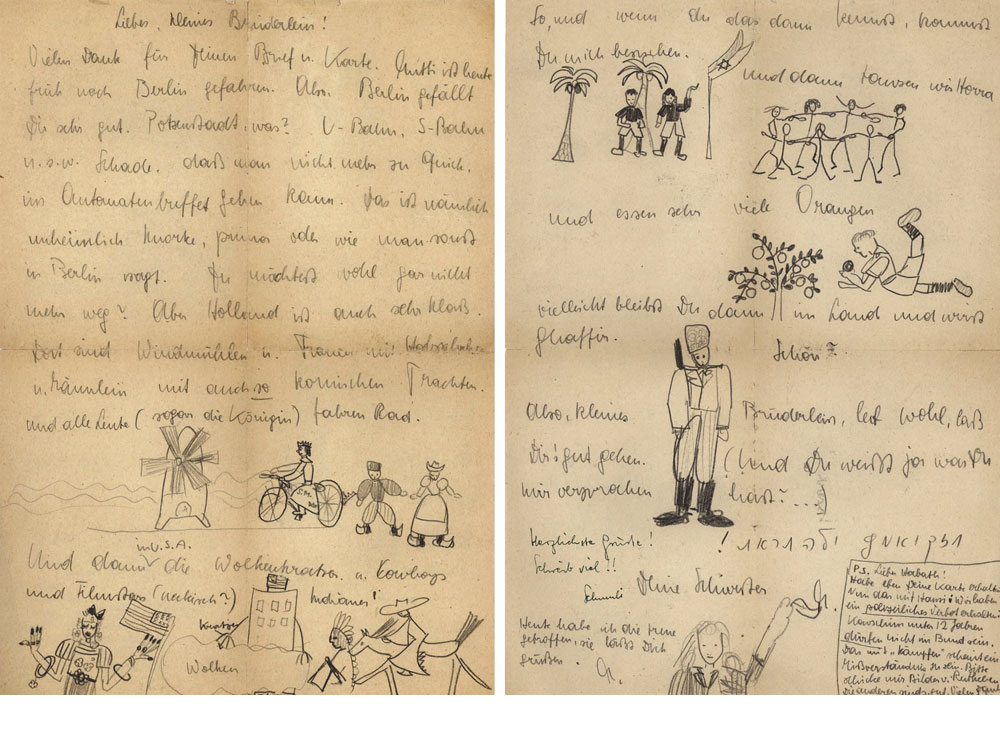 Liebes, kleines Brüderlein!
Vielen Dank für Deinen Brief u. Karte. Mutti ist heute
früh nach Berlin gefahren. Also, Berlin gefällt
Dir sehr gut. Potzenstadt, was? U-Bahn, S-Bahn
u.s.w. Schade, daß man nicht mehr zu Quick,
ins Automatenbuffet gehen kann. Das ist nämlich
unheimlich knorke, prima oder wie man sonst
in Berlin sagt. Du möchtest wohl gar nicht
mehr weg? Aber Holland ist auch sehr klaß.
Dort sind Windmühlen u. Frauen mit
u. Männlein mit auch so komischen Trachten.
und alle Leute (sogar die Königin) fahren Rad.
Und dann in U.S.A. die Wolkenkratzer u. Kowboys
und Filmstars (neckisch?) Indianer!
Kratzer
Wolken
So, und wenn du das dann kennst, kommst
Du mich besuchen.
und dann tanzen wir Horra
und essen sehr viele Orangen
vielleicht bleibst Du dann im Land und wirst
Ghaffir. Schön?
Also, kleines Brüderlein, leb wohl, laß
Dir's gut gehen. (Und Du weißt ja was Du
mir versprochen hast?...)
חזק ואמץ
Herzlichste Grüße!
Schreib viel!!
Deine Schwester
Heute habe ich die
getroffen, sie läßt Dich
grüßen.
P.S. Lieber
Habe eben Deine Karte erhalten
Nun das mit Hansi: Wir haben
ein polizeiliches Verbot erhalten:
unter 12 Jahren
dürfen nicht im Bund sein.
Das mit "kämpfen" scheint ein
Mißverständnis zu sein. Bitte
schicke mir Bilder v.
die anderen sind gut. Vielen Dank